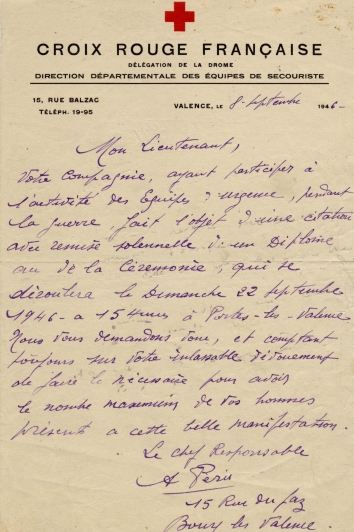 CROIX ROUGE FRANÇAISE
DÉLÉGATION DE LA DROME
DIRECTION DÉPARTEMENTALE DES ÉQUIPES DE SECOURISTE
15, RUE BALZAC
TÉLÉPH. 19-95
VALENCE, le 8 septembre 1946-
Mon Lieutenant,
Votre Compagnie, ayant participer à
l'activité des Equipes d'urgence, pendant
la guerre, fait l'objet d'une citation
avec remise solennelle d'un Diplôme
au de la Cérémonie, qui se
déroulera le Dimanche 22 septembre
1946 - a 15 heures à Portes-les-Valence
Nous vous demandons donc, et comptant
toujours sur votre inlassable dévouement
de faire le nécessaire pour avoir
le nombre maximum de vos hommes
présent a cette belle manifestation.
Le chef Responsable
15 Rue du
Bourg les Valence.